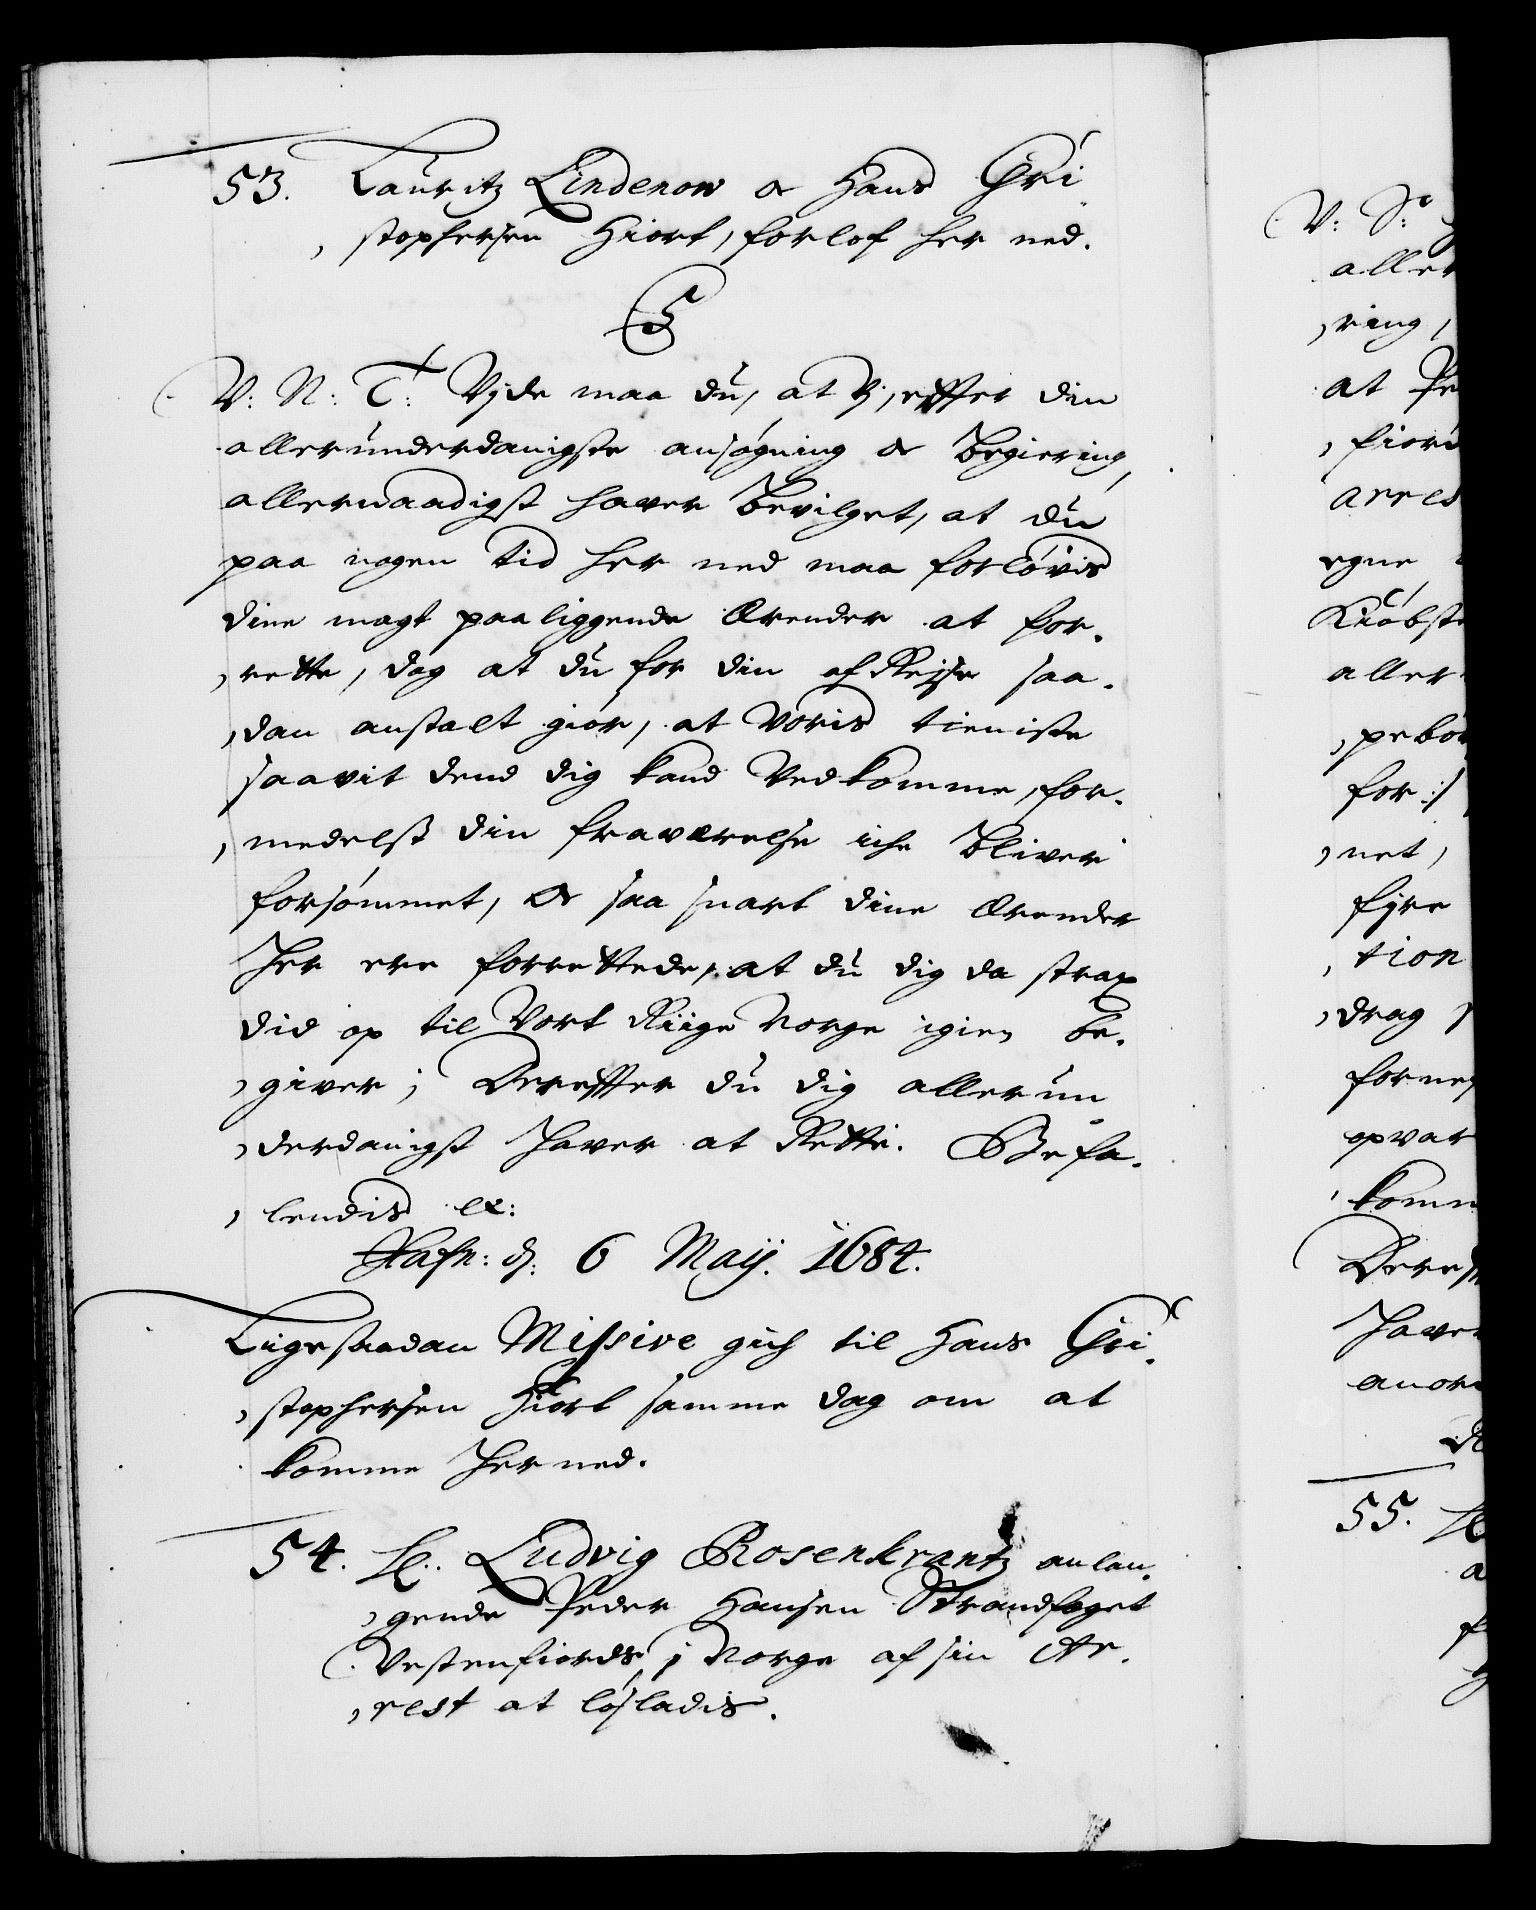 53. Lauritz Lindenow oc Hans Chri-
stophersen Hiort, forlof her ned.
C5
V: N: T: Vide maa du, at Vj, effter din
allerunderdanigste ansøgning oc begiering,
allernaadigst haver bevilget, at du
paa nogen tid her ned maa forløvis
dine magt paaliggende Ærender at for-
rette, dog at du for din afReise saa-
dan anstalt giør, at Voris tieniste
saavit dend dig kand Vedkomme, for-
medelst din fraværelse iche bliver
forsømmet, oc saa snart dine Ærender
her ere forrettede, at du dig da strax
did op til Vort Riige Norge igien be-
giver; Dereffter du dig allerun-
derdanigst haver at Rette. Befa-
lendis etc:
Hafn: d: 6 Maij. 1684.
Ligesaadan Missive gich til Hans Chri-
stophersen Hiort samme dag om at
komme her ned.
54. Hr. Ludvig Rosenkrantz anlan-
gende Peder Hansen Strandfoget
Vestenfiords i Norge af sin Ar-
rest at løsladis.
V: S:
aller
ring,
at Pe
fiord
arres
egne
Kiøbste
aller
pebør
for:/
net,
fyre
tion
drag
forne
opvar
komm
Dereff
haver
anor
55.